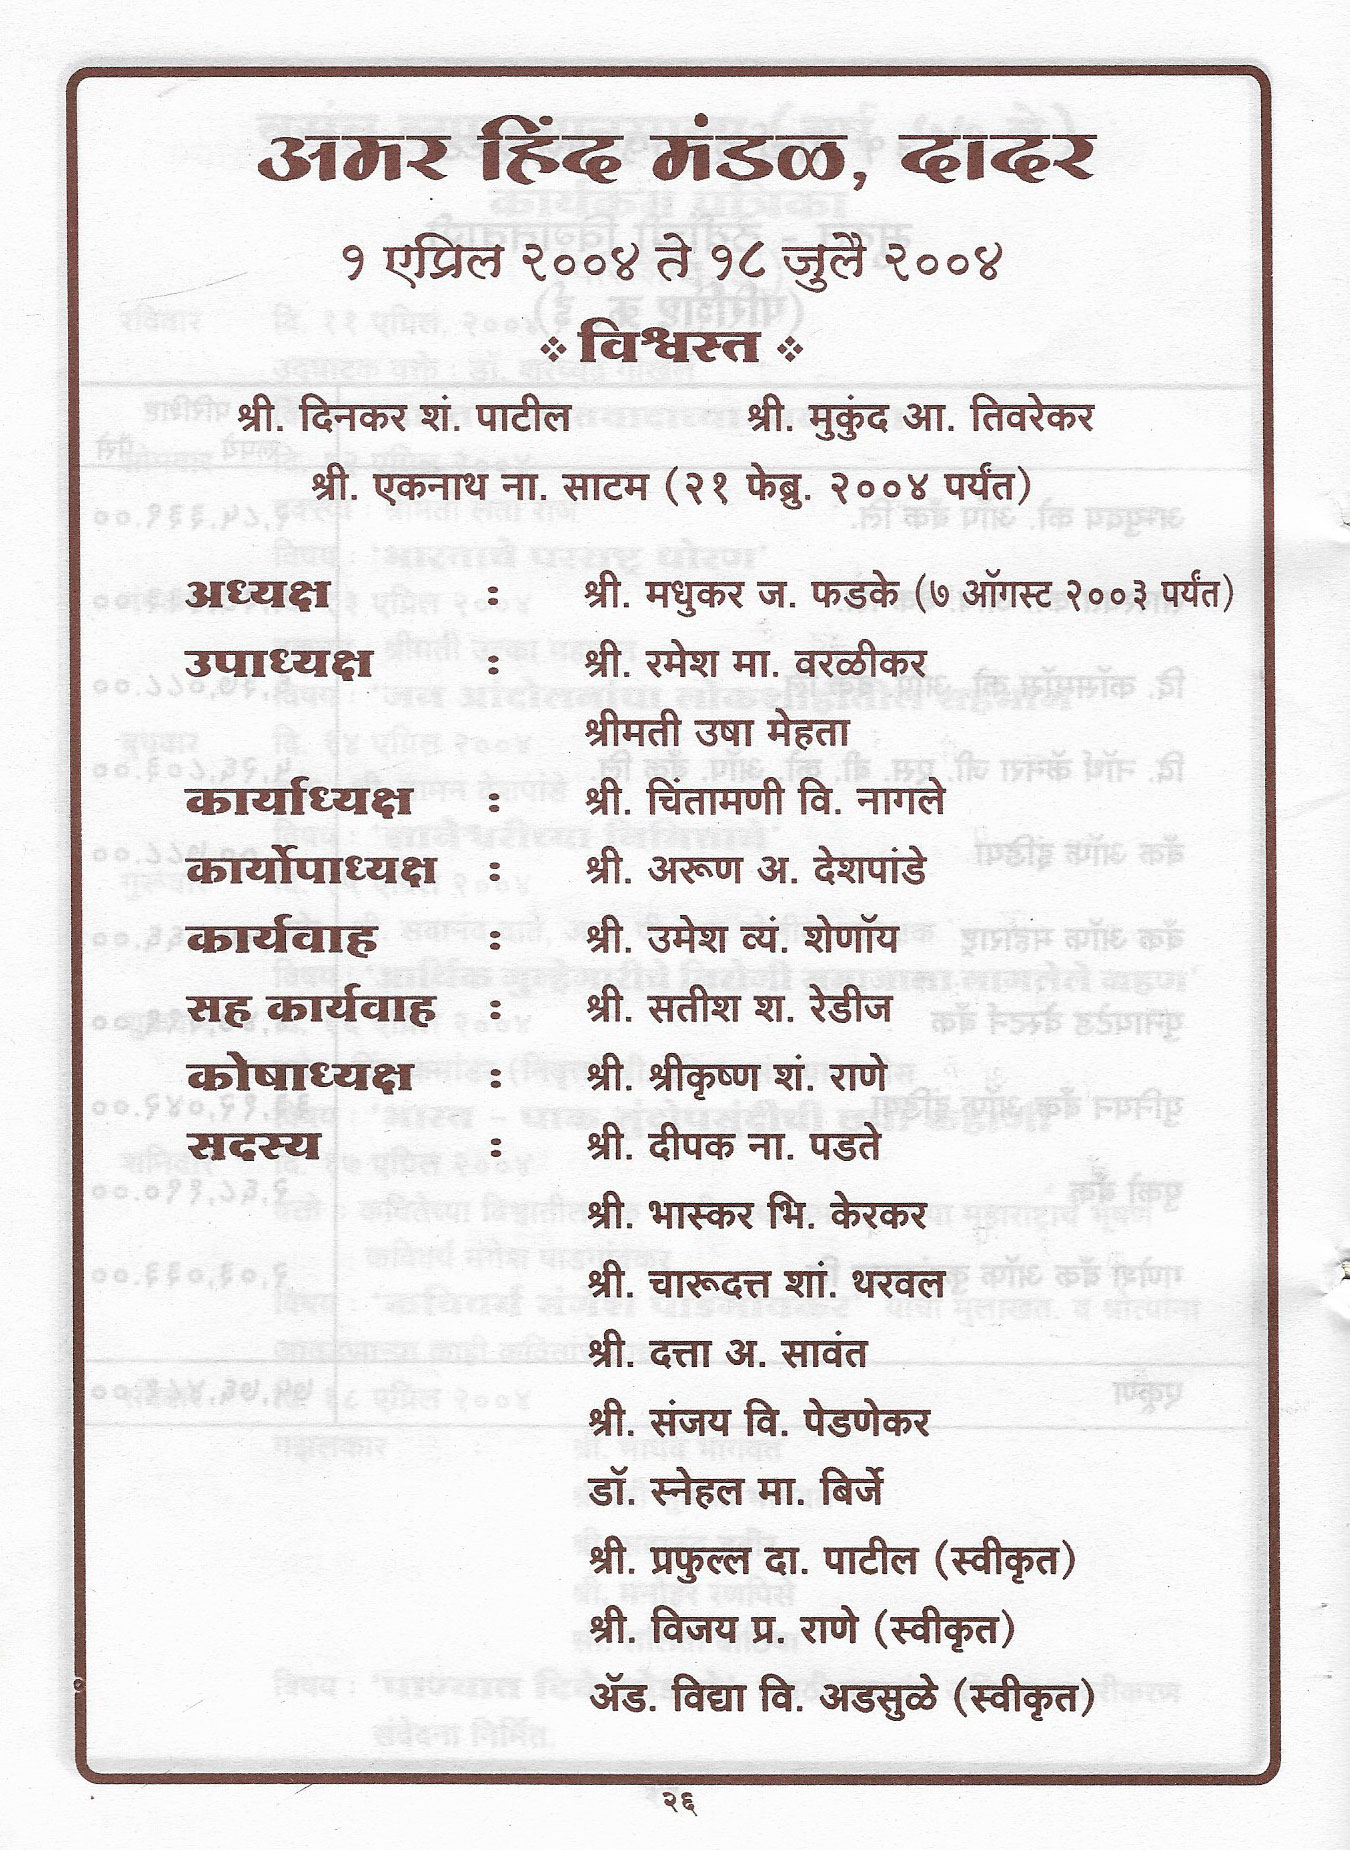 अमर हिंद मंडळ, दादर
१ एप्रिल २००४ ते १८ जुलै २००४
विश्वस्त
श्री. दिनकर शं. पाटील श्री. मुकुंद आ. तिवरेकर
श्री. एकनाथ ना. साटम (२१ फेब्रु. २००४ पर्यंत)
अध्यक्ष : श्री. मधुकर ज. फडके (७ ऑगस्ट २००३ पर्यंत)
उपाध्यक्ष : श्री. रमेश मा. वरळीकर
श्रीमती उषा मेहता
कार्याध्यक्ष : श्री. चिंतामणी वि. नागले
कार्योपाध्यक्ष : श्री. अरूण अ. देशपांडे
कार्यवाह : श्री. उमेश व्यं. शेणॉय
सह कार्यवाह : श्री. सतीश श. रेडीज
कोषाध्यक्ष : श्री. श्रीकृष्ण शं. राणे
सदस्य : श्री. दीपक ना. पडते
श्री. भास्कर भि. केरकर
श्री. चारूदत्त शां. थरवल
श्री. दत्ता अ. सावंत
श्री. संजय वि. पेडणेकर
डॉ. स्नेहल मा. बिर्जे
श्री. प्रफुल्ल दा. पाटील (स्वीकृत)
श्री. विजय प्र. राणे (स्वीकृत)
ॲड. विद्या वि. अडसुळे (स्वीकृत)
२६